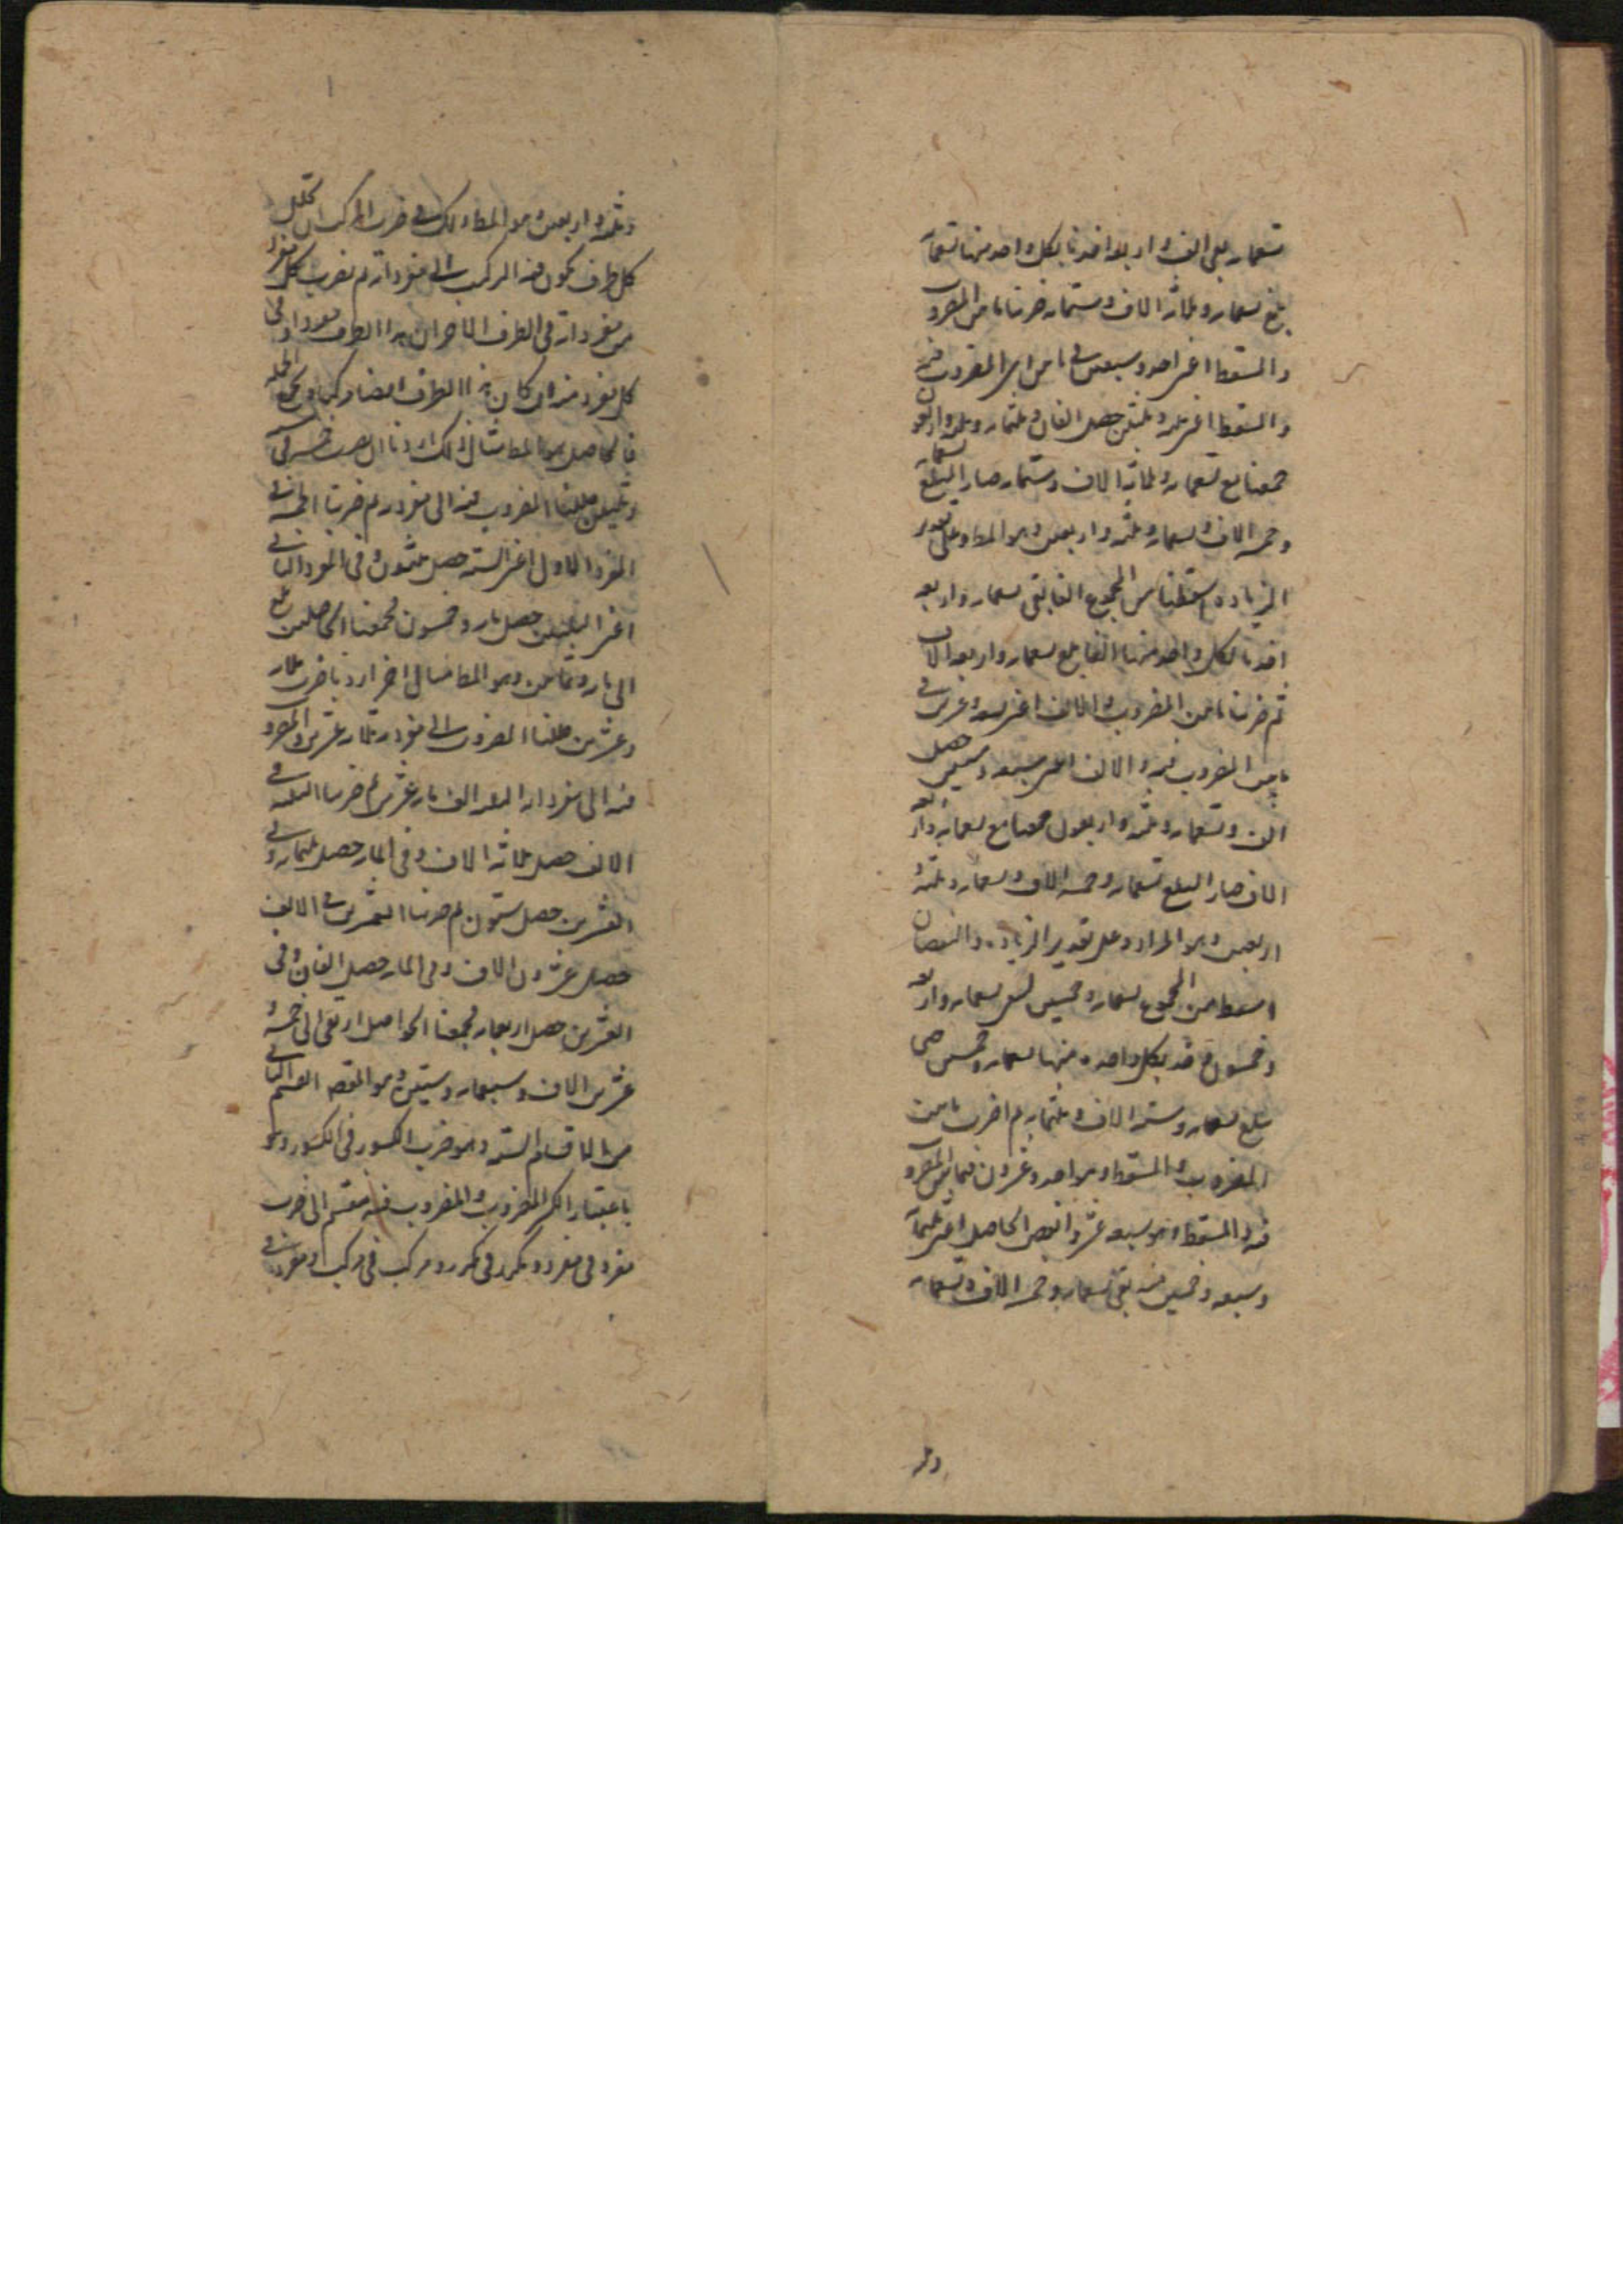 تسعمائه بقى الف و اربعه اخذنا لكل واحد منها تسعمائة
بلغ تسعمائه وثلاثة الاف وستمائه ضربنا ما بين المضروب
والمسقط اعنى احد وسبعين فى ما بين المضروب فيه
والمسقط اعنى ثلثه وثلثين حصل الفان وثلثمائه وثلثه واربعون
جمعنا مع تسعمائه وثلاثة الاف وستمائه صار المبلغ تسعمائه
وخمسه الاف وتسعمائه وثلثه واربعين وهو المط وعلى تقدير
الزياده اسقطنا من المجموع الفا بقى تسعمائه واربعه
اخذنا لكل واحد منها الفا بلغ تسعمائه واربعه الاف
ثم ضربنا ما بين المضروب والالف اعنى تسعه وعشرين فى
ما بين المضروب فيه والالف اعنى سبعه وستين حصل
الف وتسعمائه وثلثه واربعون جمعنا مع تسعمائه واربعه
الاف صار المبلغ تسعمائه وخمسه الاف وتسعمائه وثلثه و
اربعين وهو المراد وعلى تقدير الزياده والنقصان
اسقط من المجموع تسعمائه وخمسين يبقى تسعمائه واربعه
وخمسون فخذ بكل واحده منها تسعمائه وخمسين حتى
يبلغ تسعمائه وسته الاف وثلثمائه ثم اضرب ما بين
المضروب والمسقط وهو احد وعشرون فيما بين المضروب
فيه والمسقط وهو سبعه عشر وانقص الحاصل اعنى ثلثمائة
وسبعه وخمسين منه بقى تسعمائه وخمسه الاف وتسعمائه
وثلثه
وثلثه واربعين وهو المط ولك فى ضرب المركب ان تحلل
كل طرف يكون فيه المركب الى مفرداته ثم تضرب كل مفرد
من مفرداته فى الطرف الاخر ان هذا الطرف مفردا وفى
كل مفرد منه ان كان هذا الطرف ايضا مركبا وتجمع الجمله
فالحاصل هو المط مثال ذلك اردنا ان نضرب خمسه فى
وثلثين حللنا المضروب فيه الى مفرديه ثم ضربنا الخمسه فى
المفرد الاول اعنى الستة حصل ثلثون وفى المفرد الثانى
اعنى الثلثين حصل مائه وخمسون فجمعنا الحاصلين بلغ
الى مائه وثمانين وهو المط مثال اخر اردنا ضرب ثلاثه
وعشرين حللنا المضروب الى مفرديه ثلاثه وعشرين والمضروب
فيه الى مفرداته الثلثه الف مائه عشرين ثم ضربنا الثلثه فى
الالف حصل ثلاثة الاف وفى المائه حصل ثلثمائه وفى
العشرين حصل ستون ثم ضربنا العشرين فى الالف
حصل عشرون الاف وفى المائه حصل الفان وفى
العشرين حصل اربعمائه فجمعنا الحواصل ارتقى الى خمسه و
عشرين الاف وسبعمائه وستين وهو المقصد القسم الثانى
من الاقسام الستة وهو ضرب الكسور فى الكسور وهو
باعتبار الكسر المضروب والمضروب فيه منقسم الى ضرب
مفرد فى مفرد ومكرر فى مكرر ومركب فى مركب او مفرد فى